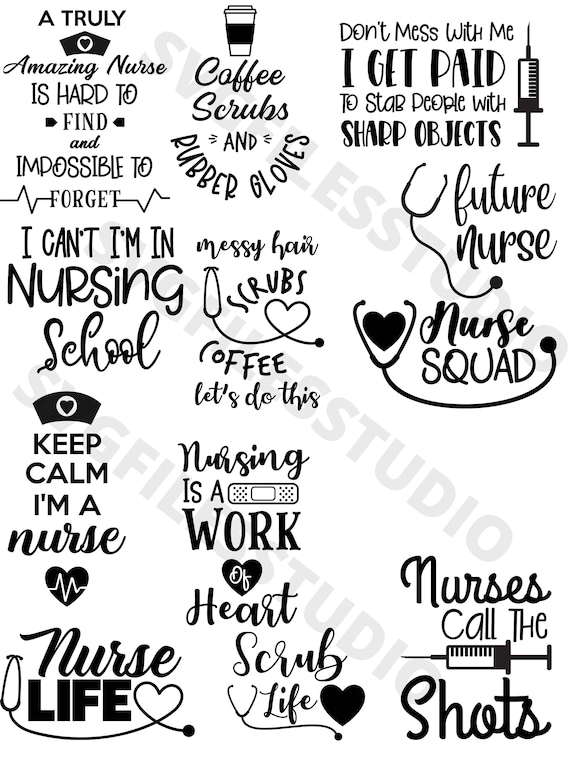 A TRULY
Amazing Nurse
IS HARD TO
FIND
and
IMPOSSIBLE TO
FORGET
Coffee
Scrubs
AND
RUBBER GLOVES
Don't Mess With Me
I GET PAID
To Stab People With
SHARP OBJECTS
future
nurse
I CAN'T I'M IN
NURSING
School
messy hair
SCRUBS
COFFEE
let's do this
Nurse
SQUAD
KEEP
CALM
I'M A
nurse
Nursing
IS A
WORK
Of
Heart
Nurse
LIFE
Scrub
Life
Nurses
CALL THE
Shots
SVGFILESSTUDIO
SVGFILESSTUDIO
SVGFILESSTUDIO